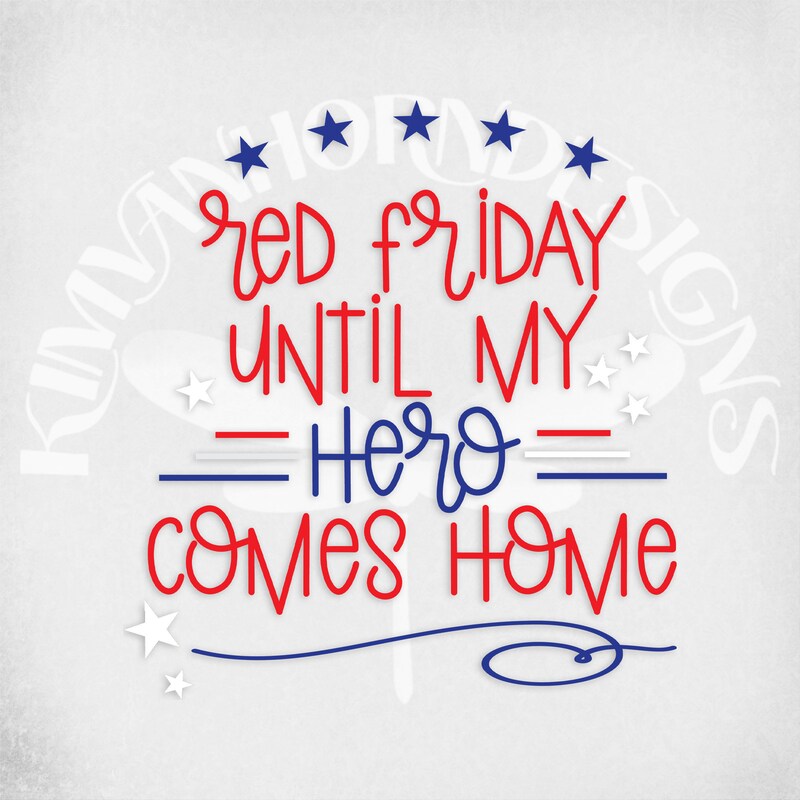 KIMVANHORNDESIGNS
RED FRiDAY
UNTiL MY
HeRO
COMeS HOMe